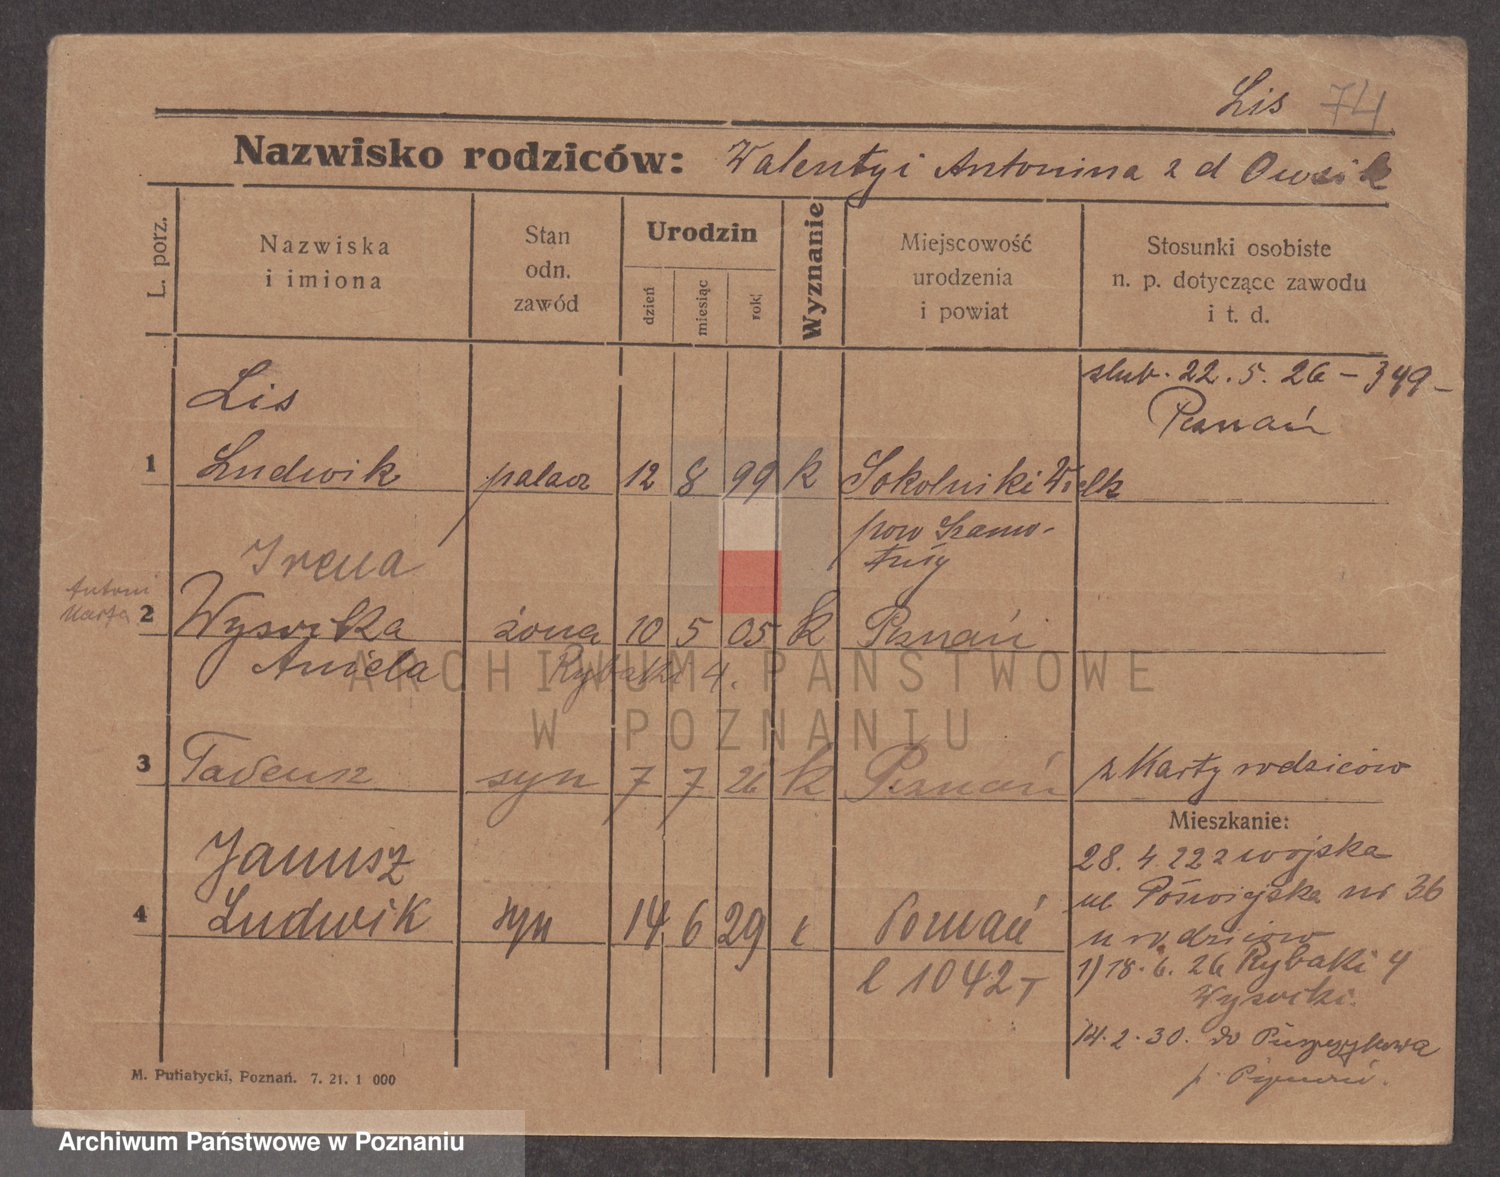 Lis 74
Nazwisko rodziców: Walenty i Antonina z d Owsik
L. porz.
Nazwiska
i imiona
Stan
odn.
zawód
Urodzin
dzień
miesiąc
rok
Wyznanie
Miejscowość
urodzenia
i powiat
Stosunki osobiste
n. p. dotyczące zawodu
i t. d.
ślub. 22. 5. 26 - 349 -
Poznań
Lis
1 Ludwik palacz 12 8 99 k Sokolniki Wielk
pow Szamo-
tuły
Irena
Antoni
Marja
2 Wysocka żona 10 5 05 k Poznań
Aniela Rybaki 4.
3 Tadeusz syn 7 7 26 k Poznań z Karty rodziców
Mieszkanie:
Janusz
4 Ludwik syn 14 6 29 k Poznań
l 1042
28. 4. 22 z wojska
ul nr 36
u rodziców
1) 18. 6. 26 Rybaki 4
Wysocki.
14. 2. 30. do Puszczykowa
p.
M. Putiatycki, Poznań. 7. 21. 1 000
ARCHIWUM PAŃSTWOWE
W POZNANIU
Archiwum Państwowe w Poznaniu